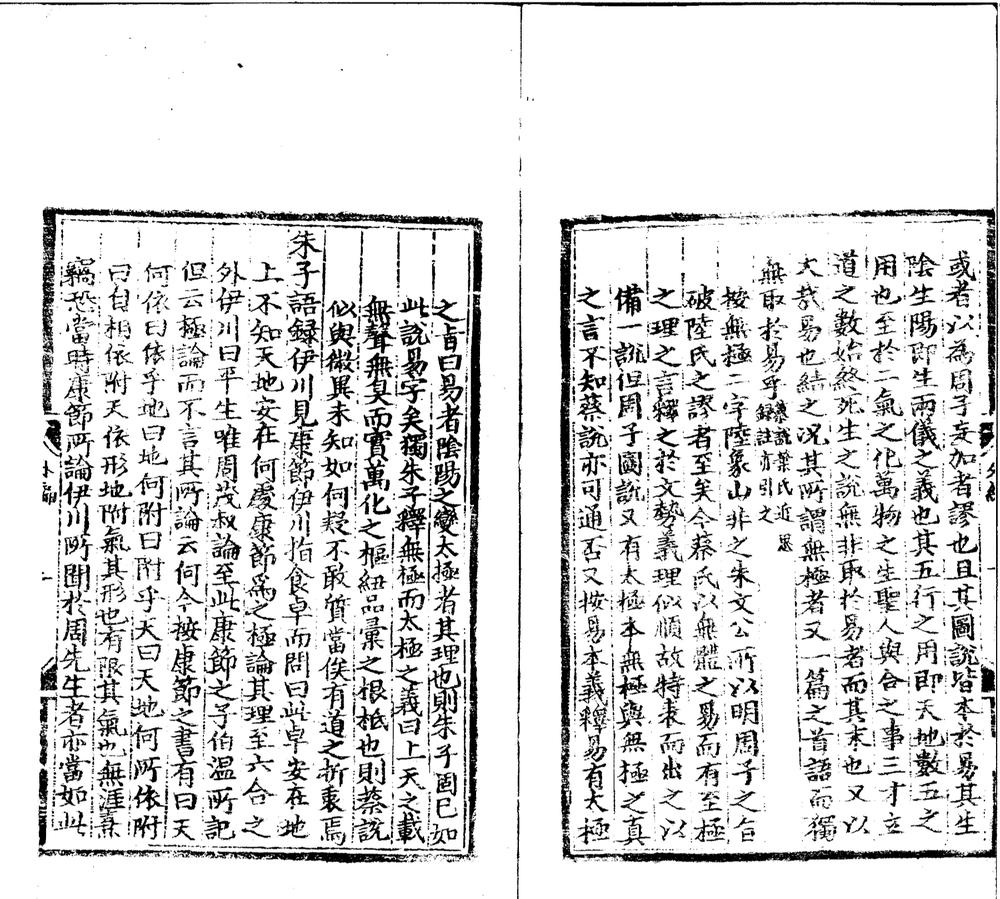 或者以為周子妄加者謬也且其圖說皆本於易其生
陰生陽即生兩儀之義也其五行之用即天地數五之
用也至於二氣之化萬物之生聖人與合之事三才立
道之數始終死生之說無非取於易者而其末也又以
大哉易也結之況其所謂無極者又一篇之首語而獨
無取於易乎蔡說葉氏近思
錄註亦引之
按無極二字陸象山非之朱文公所以明周子之旨
破陸氏之謬者至矣今蔡氏以無體之易而有至極
之理之言釋之於文勢義理似順故特表而出之以
備一說但周子圖說又有太極本無極與無極之真
之言不知蔡說亦可通否又按易本義釋易有太極
之旨曰易者陰陽之變太極者其理也則朱子固已如
此說易字矣獨朱子釋無極而太極之義曰上天之載
無聲無臭而實萬化之樞紐品彙之根柢也則蔡說
似與微異未知如何疑不敢質當俟有道之折衷焉
朱子語録伊川見康節伊川指食卓而問曰此卓安在地
上不知天地安在何處康節爲之極論其理至六合之
外伊川曰平生唯周茂叔論至此康節之子伯溫所記
但云極論而不言其所論云何今按康節之書有曰天
何依曰依乎地曰地何附曰附乎天曰天地何所依附
曰自相依附天依形地附氣其形也有限其氣也無涯熹
竊恐當時康節所論伊川所聞於周先生者亦當如此
外編